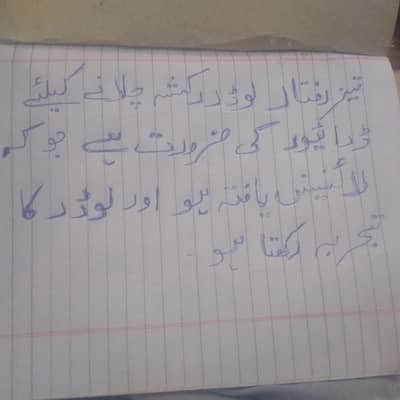 تیز رفتار لوڈر رکشہ چلانے کیلئے
ڈرائیور کی ضرورت ہے جو کہ
لائسنس یافتہ ہو اور لوڈر کا
تجربہ رکھتا ہو -